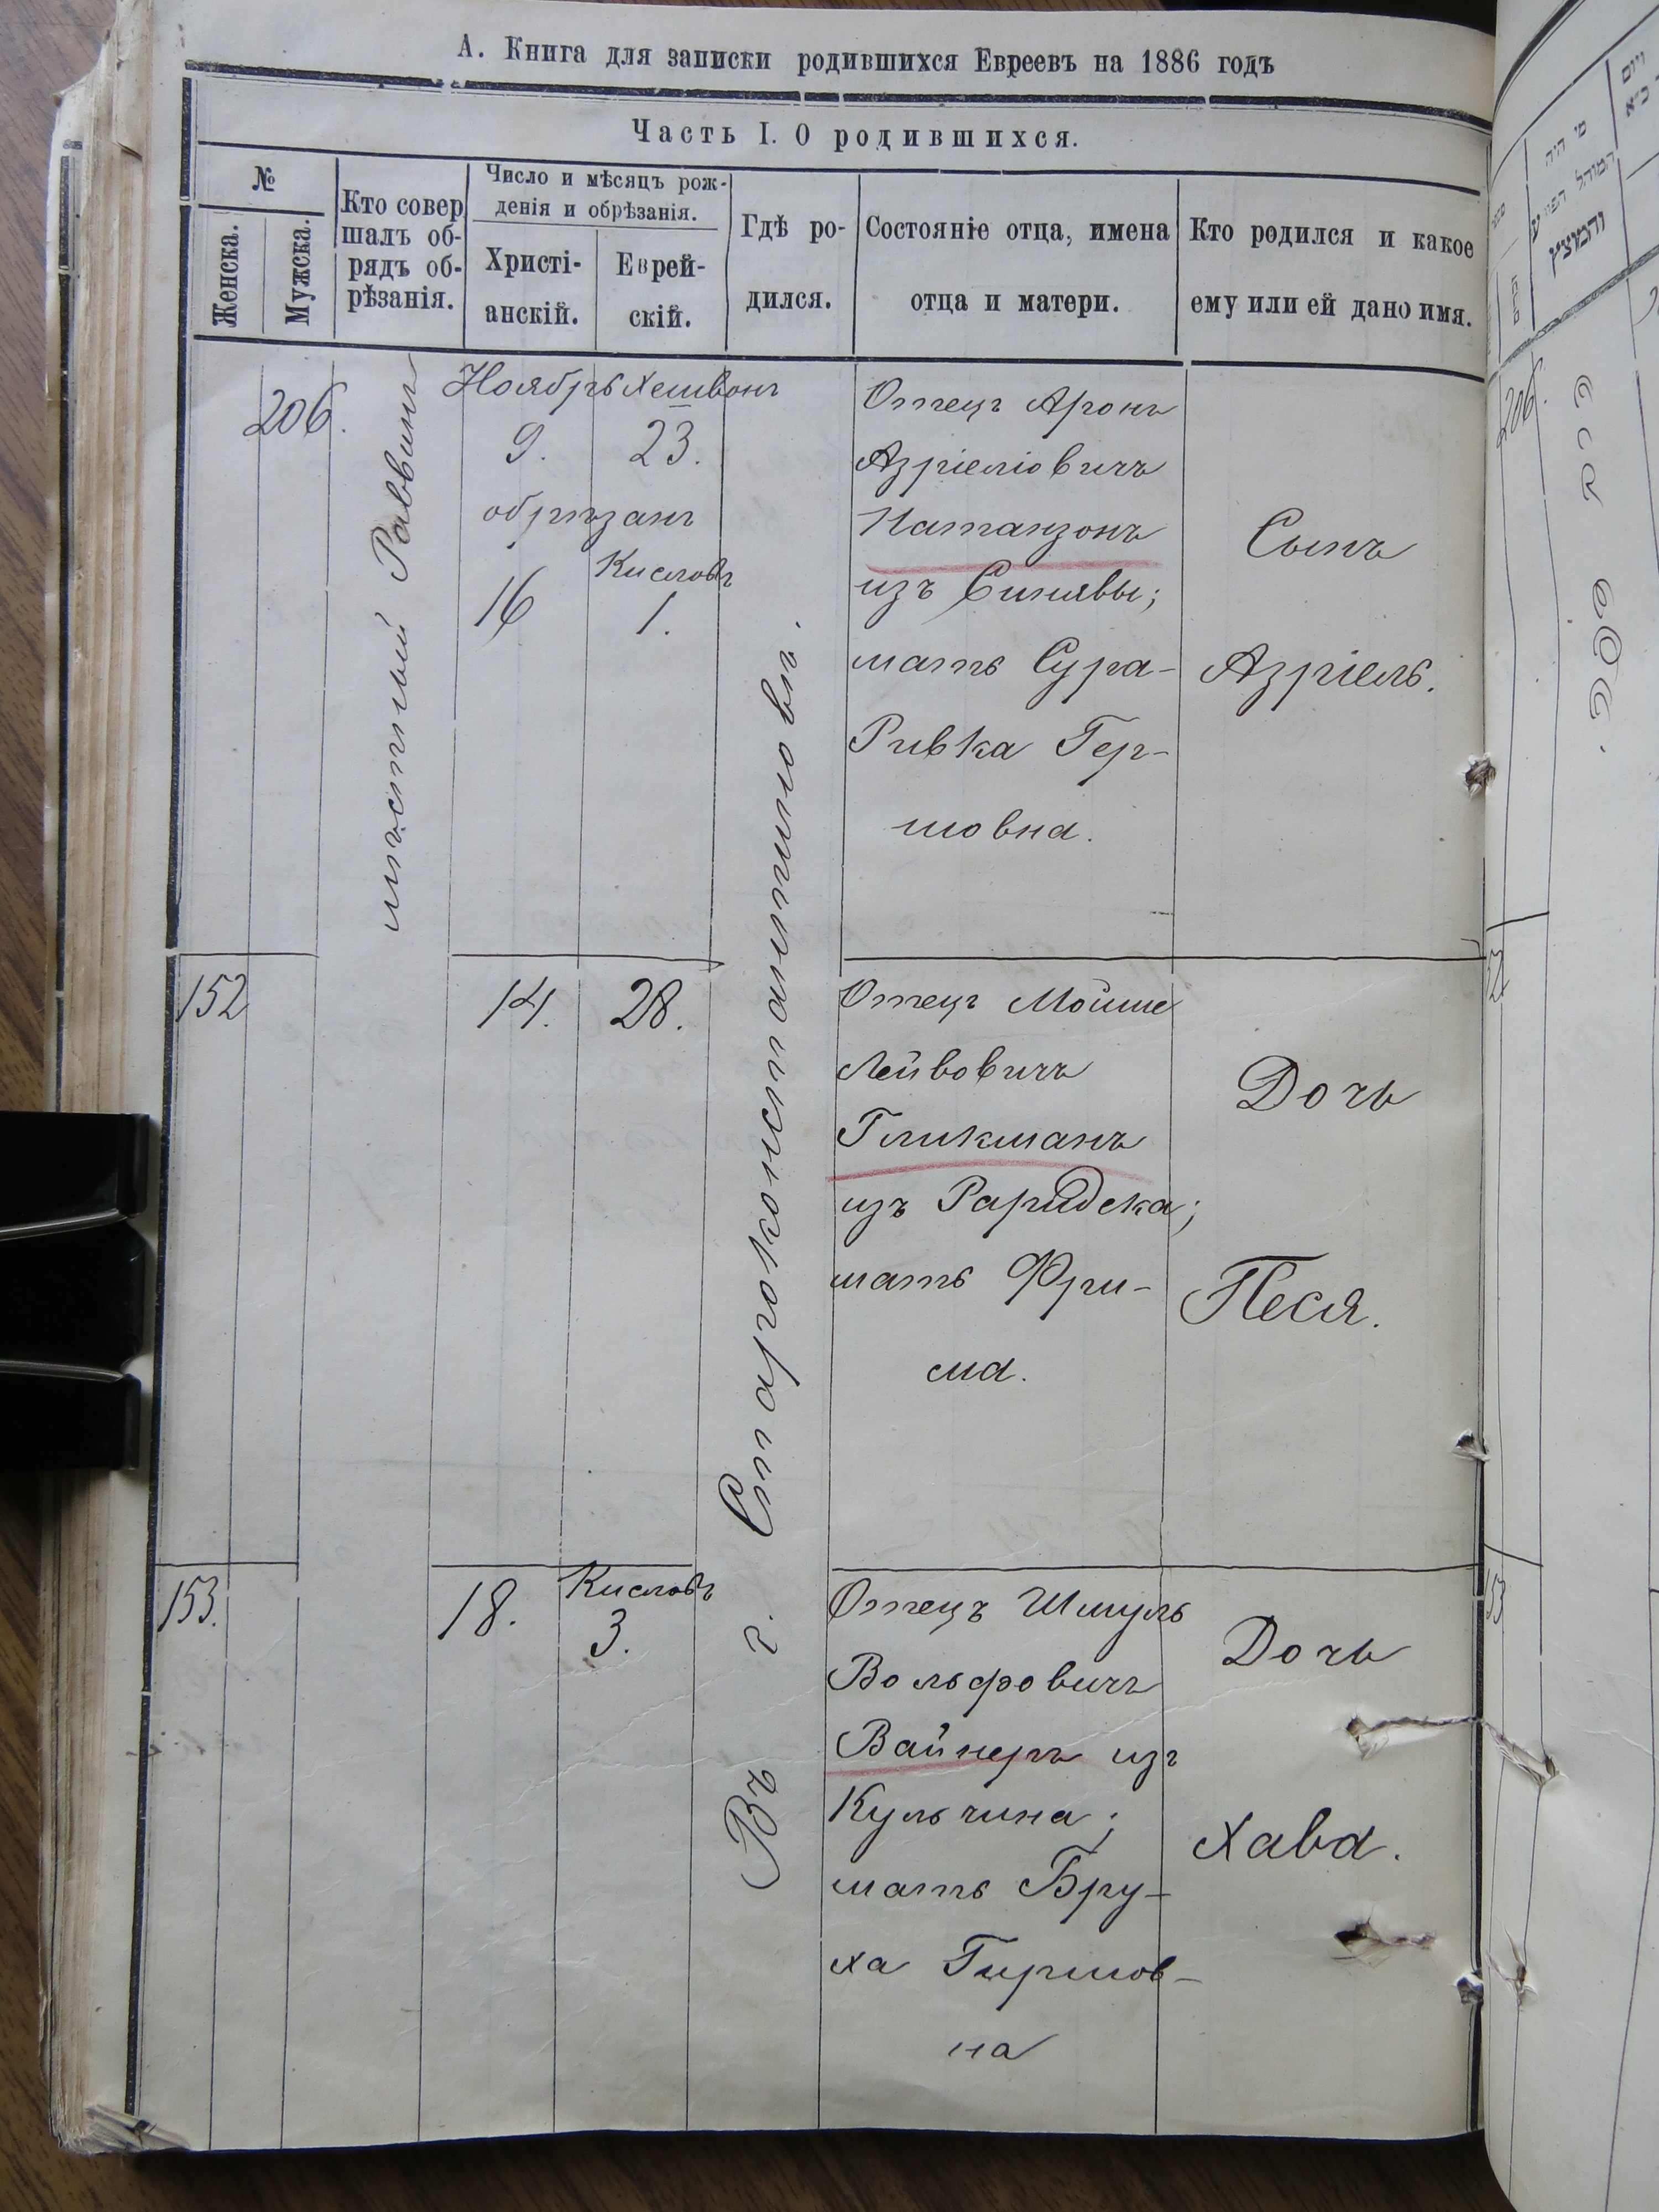 А. Книга для записки родившихся Евреевъ на 1886 годъ
Часть I. О родившихся.
№
Женска.
Мужска.
Кто совер
шалъ об-
рядъ об-
рѣзанія.
Число и мѣсяцъ рож-
денія и обрѣзанія.
Христі-
анскій.
Еврей-
скій.
Гдѣ ро-
дился.
Состояніе отца, имена
отца и матери.
Кто родился и какое
ему или ей дано имя.
206.
мѣстный Раввинъ
Ноябрь Хешвонъ
9. 23.
обрѣзанъ
Кисловъ
16 1.
Въ г. Староконстантиновѣ.
Отецъ Аронъ
Азріеліовичъ
Натанзонъ
изъ Синявы;
мать Сура-
Ривка Гер-
шовна.
Сынъ
Азріель.
152
14. 28.
Отецъ Мойше
Лейвовичъ
Гликманъ
изъ
мать Фри-
ма.
Дочь
Песя.
153.
18.
Кисловъ
3.
Отецъ Шмуль
Вольфовичъ
Вайнеръ изъ
Кульчина;
мать Бру-
ха Гиршов-
на
Дочь
Хава.
מי היה
206.
152
153